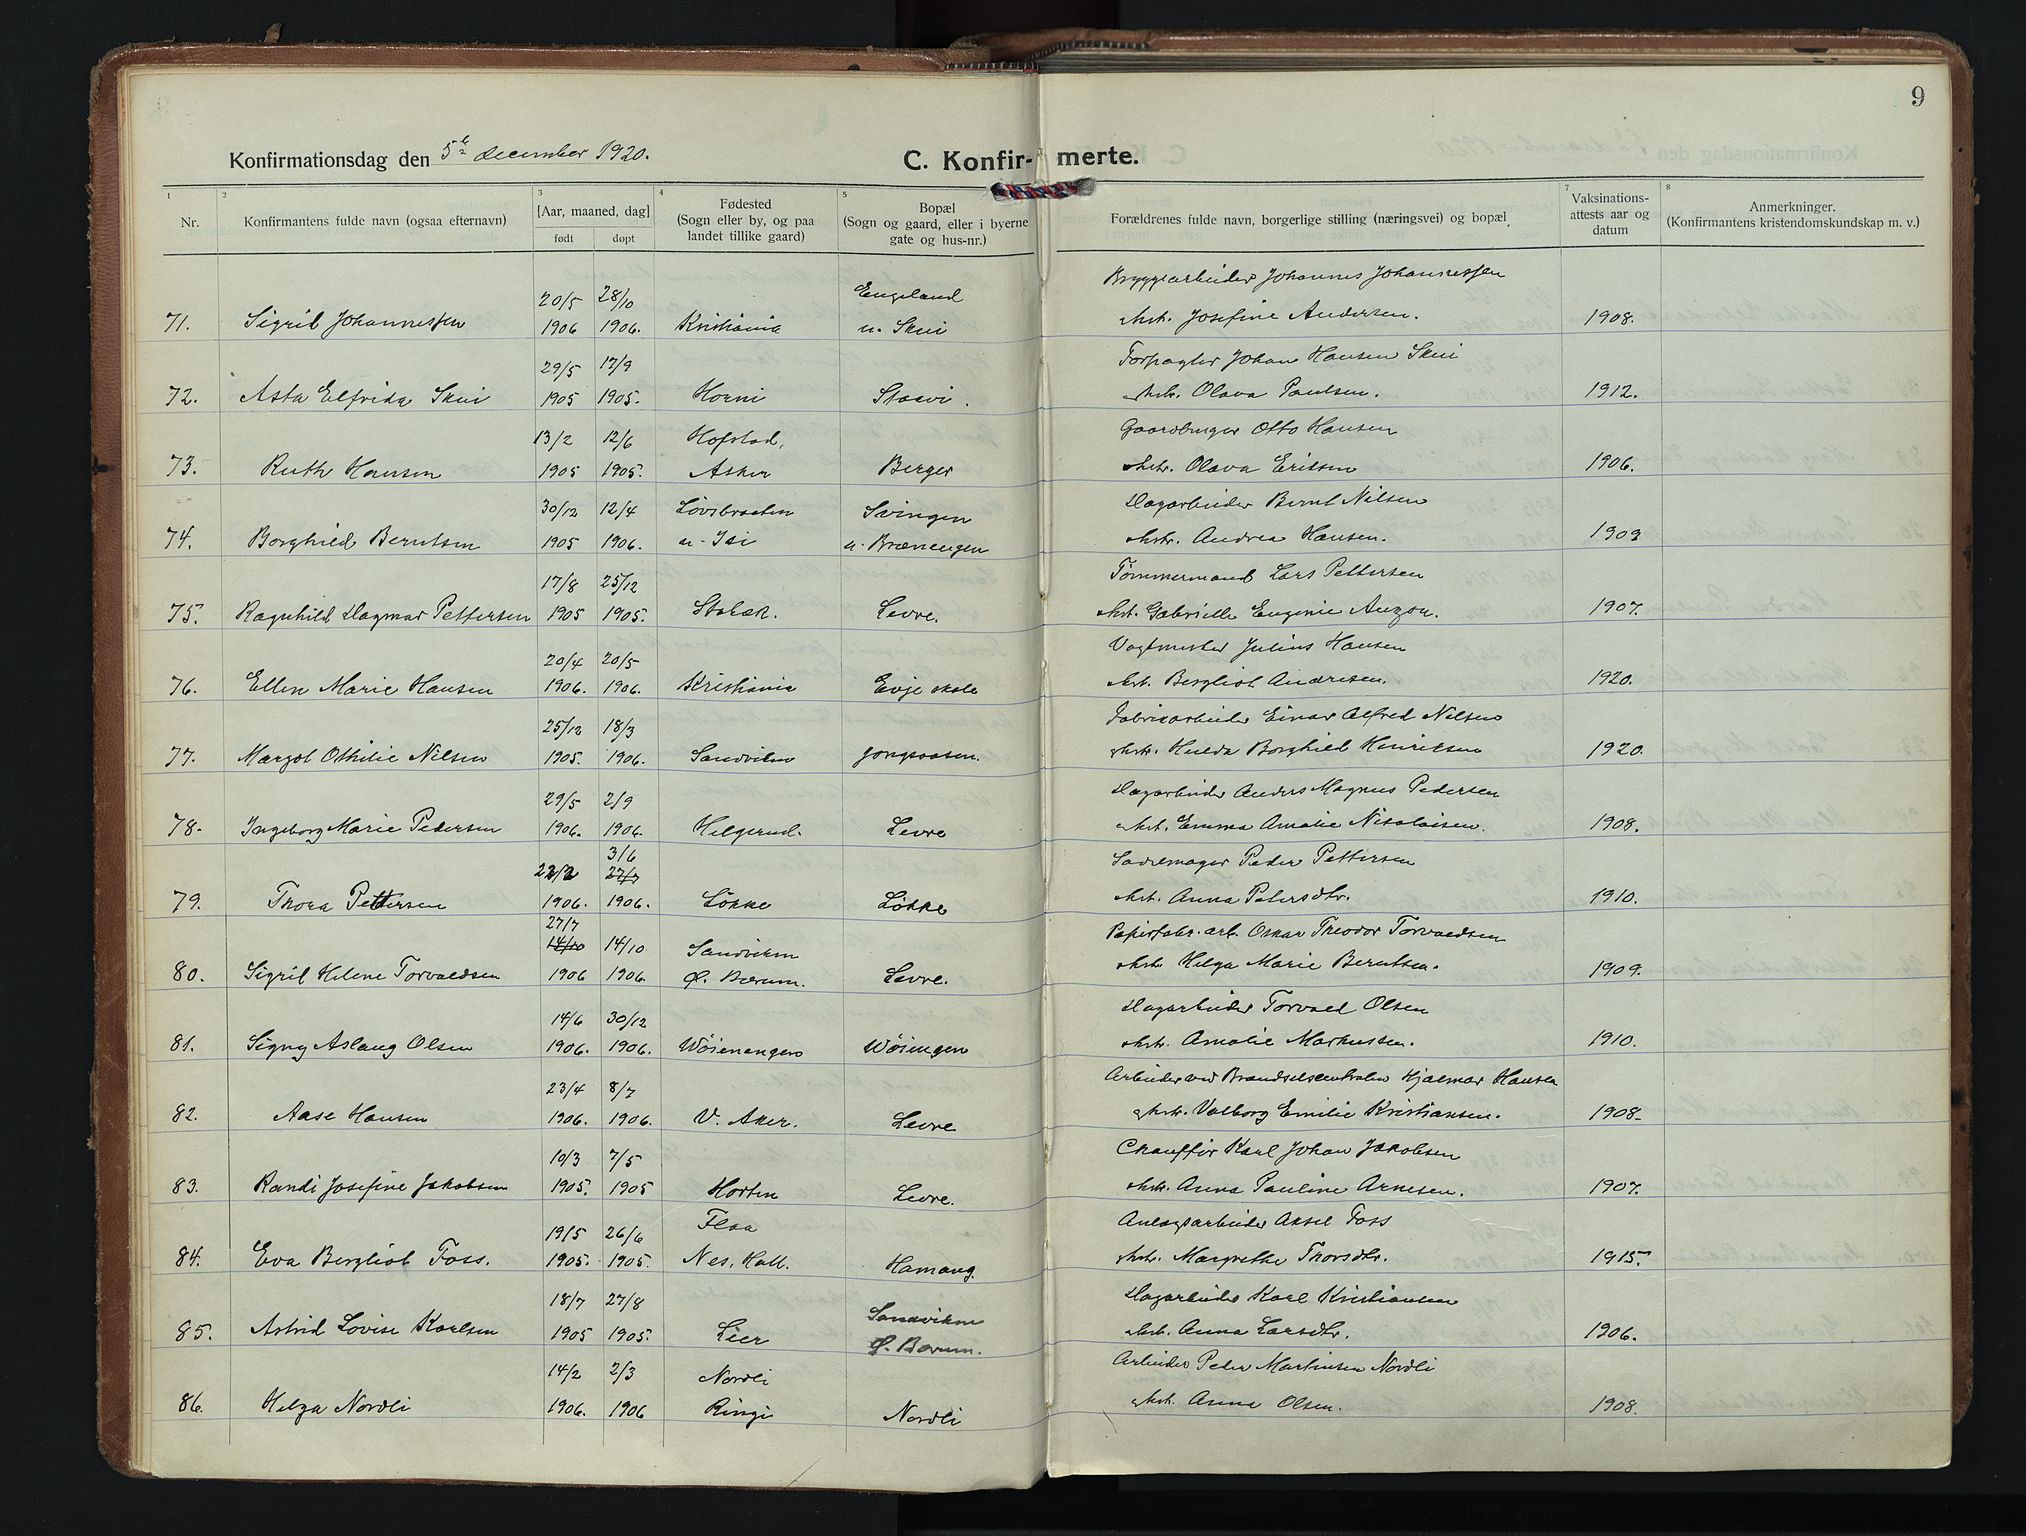 9
Konfirmationsdag den 5te december 1920.
C. Konfir- merte.
1 2 3 4 5 7 8
Nr.
Konfirmantens fulde navn (ogsaa efternavn)
[Aar, maaned, dag]
født døpt
Fødested
(Sogn eller by, og paa
landet tillike gaard)
Bopæl
(Sogn og gaard, eller i byerne
gate og hus-nr.)
Forældrenes fulde navn, borgerlige stilling (næringsvei) og bopæl
Vaksinations-
attests aar og
datum
Anmerkninger.
(Konfirmantens kristendomskundskap m. v.)
20/5 28/10 Engeland Bryggearbeider Johannes Johannessen
71. Sigrid Johannessen 1906 1906. Kristiania u. Skui Hstr. Josefine Andersen. 1908.
29/5 17/9 Forpagter Johan Hansen Skui
72. Asta Elfrida Skui 1905 1905. Horni Stasvi. Hstr. Olava Paulsen. 1912.
13/2 12/6 Hofstad, Gaardbruger Otto Hansen
73. Ruth Hansen 1905 1905. Asker Berger Hstr. Olava Eriksen 1906.
30/12 12/4 Løvsbraaten Svingen Dagarbeider Bernt Nilsen
74. Borghild Berntsen 1905 1906. u. Isi u. Brænengen Hstr. Andrea Hansen. 1909
17/8 25/12 Tømmermand Lars Pettersen
75. Ragnhild Dagmar Pettersen 1905 1905. Stabæk. Levre. Hstr. Gabrielle Eugenie Auzon. 1907.
20/4 20/5 Vagtmester Julius Hansen
76. Ellen Marie Hansen 1906. 1906. Kristiania Evje skole Hstr. Bergliot Andresen. 1920.
25/12 18/3 Fabrikarbeider Einar Alfred Nilsen
77. Margot Othilie Nilsen 1905. 1906. Sandviken Jongsaasen. Hstr. Hulda Borghild Henriksen 1920.
29/5 2/9 Dagarbeider Anders Magnus Pedersen
78. Ingeborg Marie Pedersen 1906. 1906. Helgerud. Levre Hstr. Emma Amalie Nikolaisen. 1908.
3/6
22/2 27/7 Sadelmager Peder Pettersen
79. Thora Pettersen 1906. 1906. Løkke Løkke Hstr. Anna Petersdtr. 1910.
27/7
14/10 14/10 Sandviken Papirfabr. arb. Oskar Theodor Torvaldsen
80. Sigrid Helene Torvaldsen 1906 1906. Ø. Bærum. Levre. Hstr. Helga Marie Berntsen. 1909.
14/6 30/12 Dagarbeider Torvald Olsen
81. Signy Aslaug Olsen 1906. 1906. Wøienengen Wøiengen Hstr. Amalie Markussen. 1910.
23/4 8/7 Arbeider ved Brændselscentralen Hjalmar Hansen
82. Aase Hansen 1906. 1906. V. Aker. Levre Hstr. Valborg Emilie Kristiansen. 1908.
10/3 7/5 Chauffør Karl Johan Jakobsen
83. Randi Josefine Jakobsen 1905. 1905 Horten Levre. Hstr. Anna Pauline Arnesen. 1907.
19/5 26/6 Flaa Anlægsarbeider Aksel Foss
84. Eva Bergliot Foss. 1905. 1905. Nes, Hall. Hamang. Hstr. Margrethe Thorsdtr. 1915.
18/7 27/8 Sandviken Dagarbeider Karl Kristiansen
85. Astrid Lovise Karlsen 1905 1905. Lier Ø. Bærum. Hstr. Anna Larsdtr. 1906.
14/2 2/3 Nordli Arbeider Peder Martinsen Nordli
86. Helga Nordli 1906. 1906 Ringi Nordli Hstr. Anna Olsen. 1908.